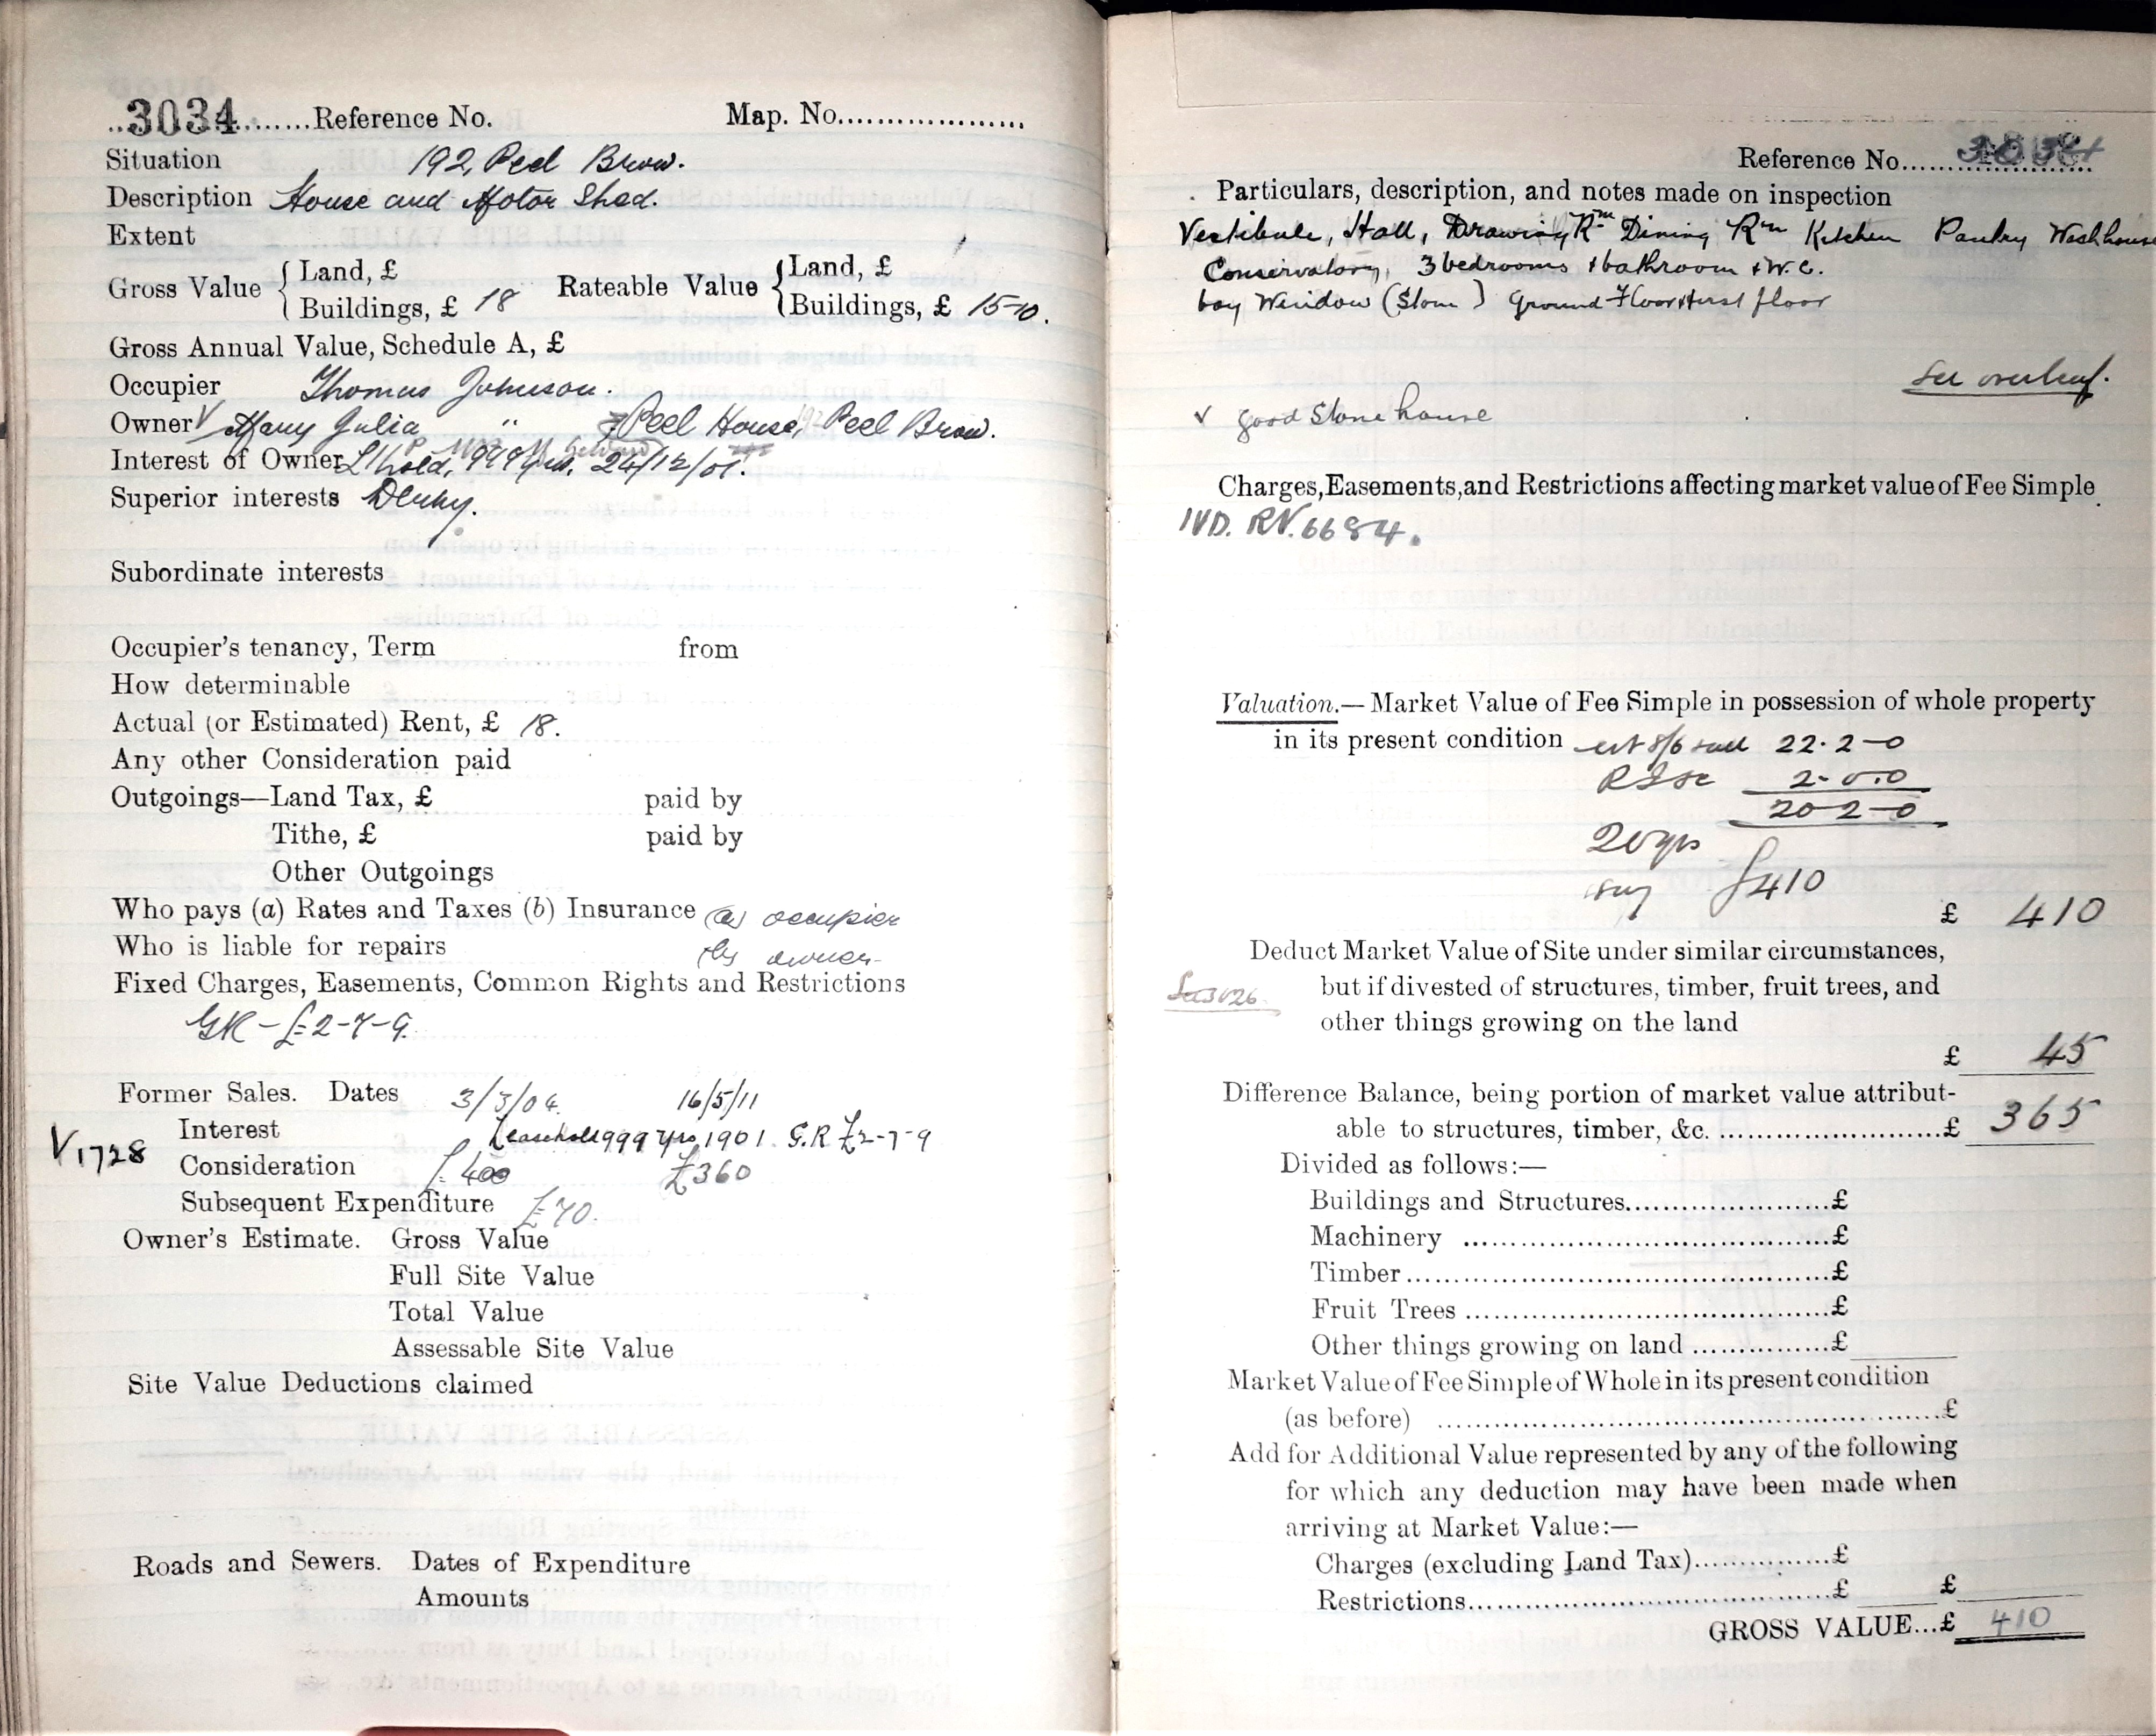 3034 Reference No. Map. No.
Situation 192, Peel Brow.
Description House and Motor Shed.
Extent
Gross Value { Land, £ Rateable Value { Land, £
Buildings, £ 18 Buildings, £ 15-10.
Gross Annual Value, Schedule A, £
Occupier Thomas Johnson.
Owner V Mary Julia " Peel House, 192 Peel Brow.
Interest of Owner L'hold, 999 yrs, 24/12/01.
Superior interests Derby.
Subordinate interests
Occupier's tenancy, Term from
How determinable
Actual (or Estimated) Rent, £ 18.
Any other Consideration paid
Outgoings—Land Tax, £ paid by
Tithe, £ paid by
Other Outgoings
Who pays (a) Rates and Taxes (b) Insurance (a) occupier
Who is liable for repairs (b) owner
Fixed Charges, Easements, Common Rights and Restrictions
GR - £2-7-9.
Former Sales. Dates 3/3/04. 16/5/11
Interest Leasehold 999 yrs 1901. G.R £2-7-9
V1728 Consideration £400 £360
Subsequent Expenditure £70.
Owner's Estimate. Gross Value
Full Site Value
Total Value
Assessable Site Value
Site Value Deductions claimed
Roads and Sewers. Dates of Expenditure
Amounts
Reference No. 3034
Particulars, description, and notes made on inspection
Vestibule, Hall, Drawing Rm Dining Rm Kitchen Pantry Washhouse
Conservatory, 3 bedrooms + bathroom + W.C.
bay Window (Stone) Ground Floor + first floor
See overleaf.
✓ good Stone house
Charges, Easements, and Restrictions affecting market value of Fee Simple
IVD. RV. 6684.
Valuation.—Market Value of Fee Simple in possession of whole property
in its present condition est 8/6 22.2-0
2-0.0
20-2-0
20 yrs
say £410
£ 410
Deduct Market Value of Site under similar circumstances,
See 3026 but if divested of structures, timber, fruit trees, and
other things growing on the land
£ 45
Difference Balance, being portion of market value attribut-
able to structures, timber, &c. £ 365
Divided as follows:—
Buildings and Structures £
Machinery £
Timber £
Fruit Trees £
Other things growing on land £
Market Value of Fee Simple of Whole in its present condition
(as before) £
Add for Additional Value represented by any of the following
for which any deduction may have been made when
arriving at Market Value:—
Charges (excluding Land Tax) £
Restrictions £ £
GROSS VALUE...£ 410